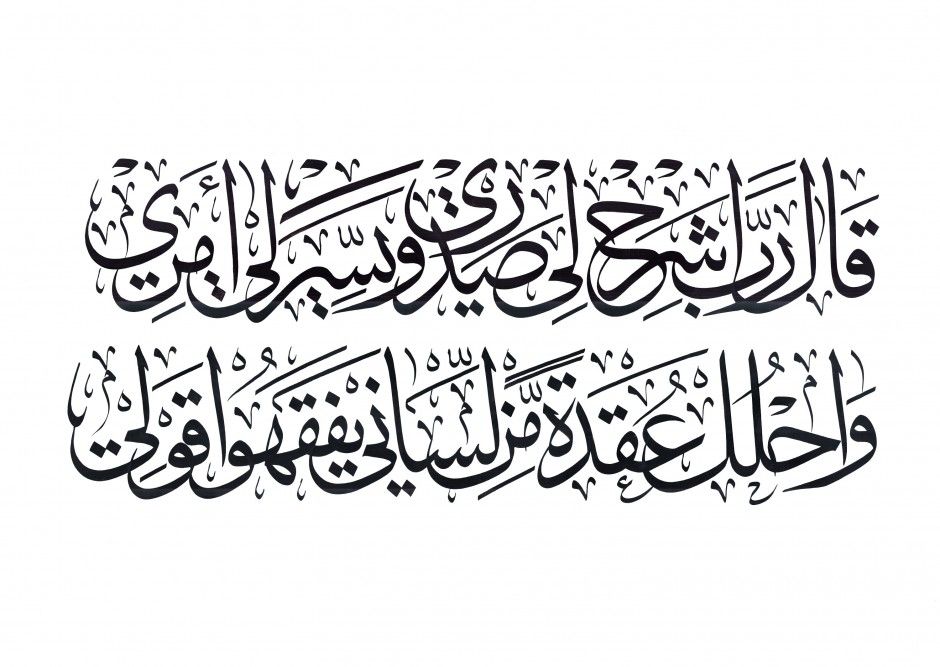 قَالَ رَبِّ اشْرَحْ لِي صَدْرِي وَيَسِّرْ لِي أَمْرِي
وَاحْلُلْ عُقْدَةً مِّن لِّسَانِي يَفْقَهُوا قَوْلِي